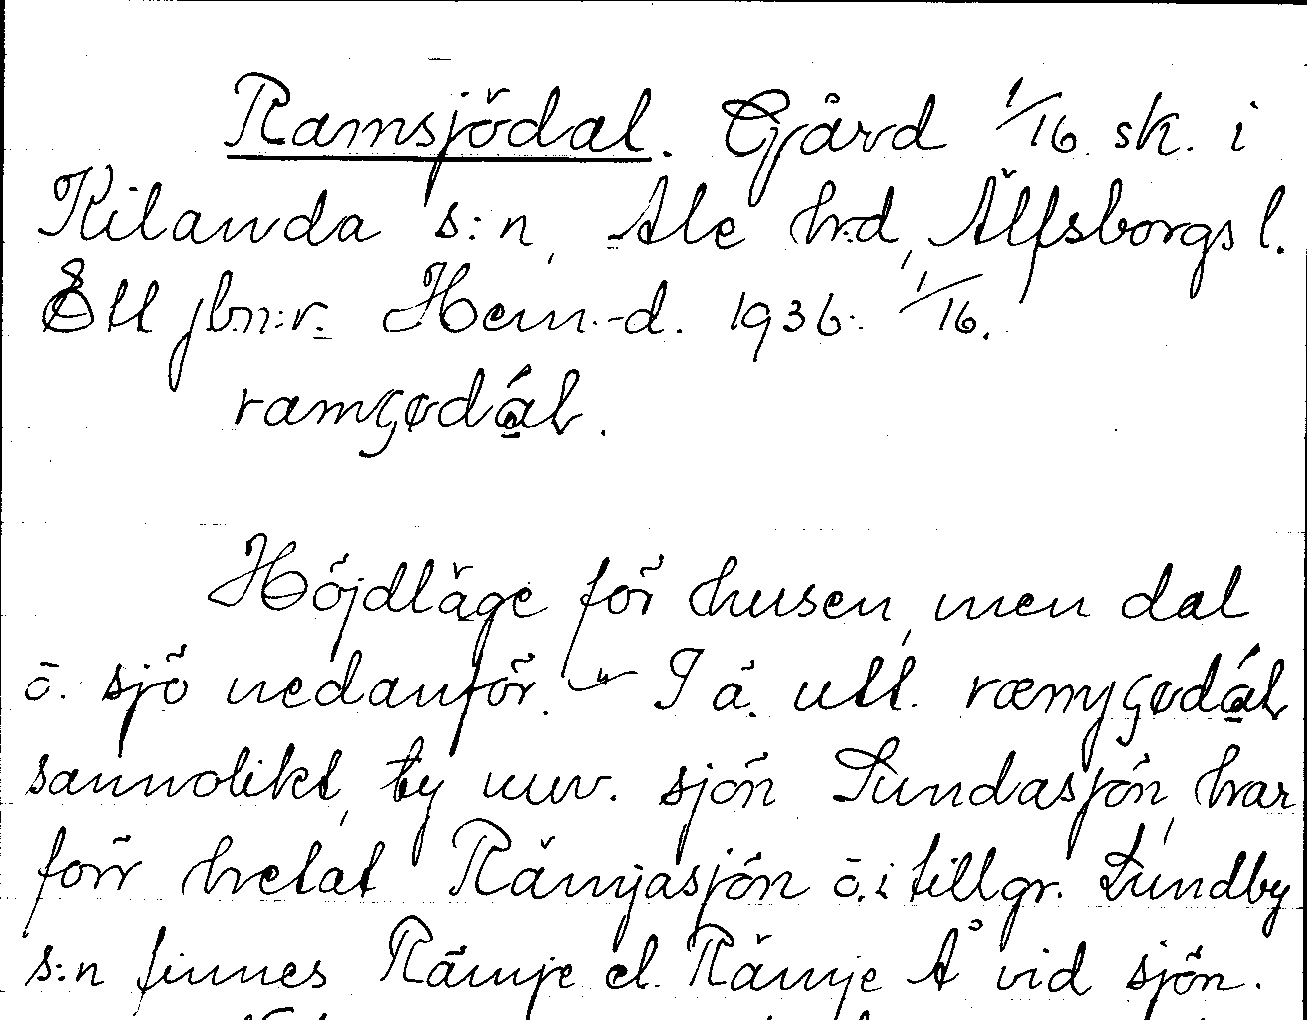 Ramsjödal. Gård 1/16 sk. i
Kilanda s:n, Ale hrd, Älfsborgs l.
Ett jbn:r. Hem.-d. 1936: 1/16.
ramςødál.
Höjdläge för husen, men dal
o. sjö nedanför. — I ä. utt. ræmjςødál
sannolikt, ty nuv. sjön Sundasjön, har
förr hetat Rämjasjön o. i tillgr. Lundby
s:n finnes Rämje el. Rämje Å vid sjön.